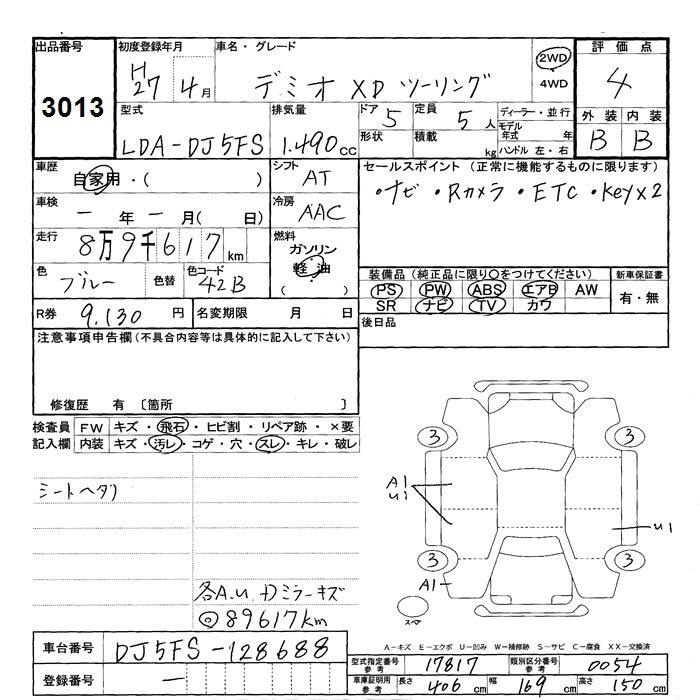 出品番号
3013
初度登録年月
H27 4月
車名・グレード
デミオ XD ツーリング
2WD
4WD
評価点
4
外装 内装
B B
型式
LDA-DJ5FS
排気量
1.490cc
ドア 5
形状
定員 5人
積載 kg
ディーラー・並行
モデル年式 年
ハンドル 左・右
車歴
自家用・( )
車検
一年一月( 日)
走行
8万9千617km
色
ブルー
色替
色コード
42B
シフト
AT
冷房
AAC
燃料
ガソリン
軽油
( )
セールスポイント (正常に機能するものに限ります)
・ナビ ・Rカメラ ・ETC ・Keyx2
装備品 (純正品に限り○をつけてください)
PS PW ABS エアB AW
SR ナビ TV カワ
新車保証書
有・無
後日品
R券 9.130円
名変期限 月 日
注意事項申告欄 (不具合内容等は具体的に記入して下さい)
修復歴 有 〔箇所 〕
検査員記入欄
FW キズ・飛石・ヒビ割・リペア跡・×要
内装 キズ・汚レ・コゲ・穴・スレ・キレ・破レ
シートヘタリ
各A.U Dミラーキズ
◎89617km
3 3
A1
U1
U1
3 3
A1
スペア
A-キズ E-エクボ U-凹み W-補修跡 S-サビ C-腐食 XX-交換済
車台番号
DJ5FS-128688
登録番号
一
型式指定番号 参考
17817
類別区分番号 参考
0054
車庫証明用 参考
長さ 406 cm
幅 169 cm
高さ 150 cm